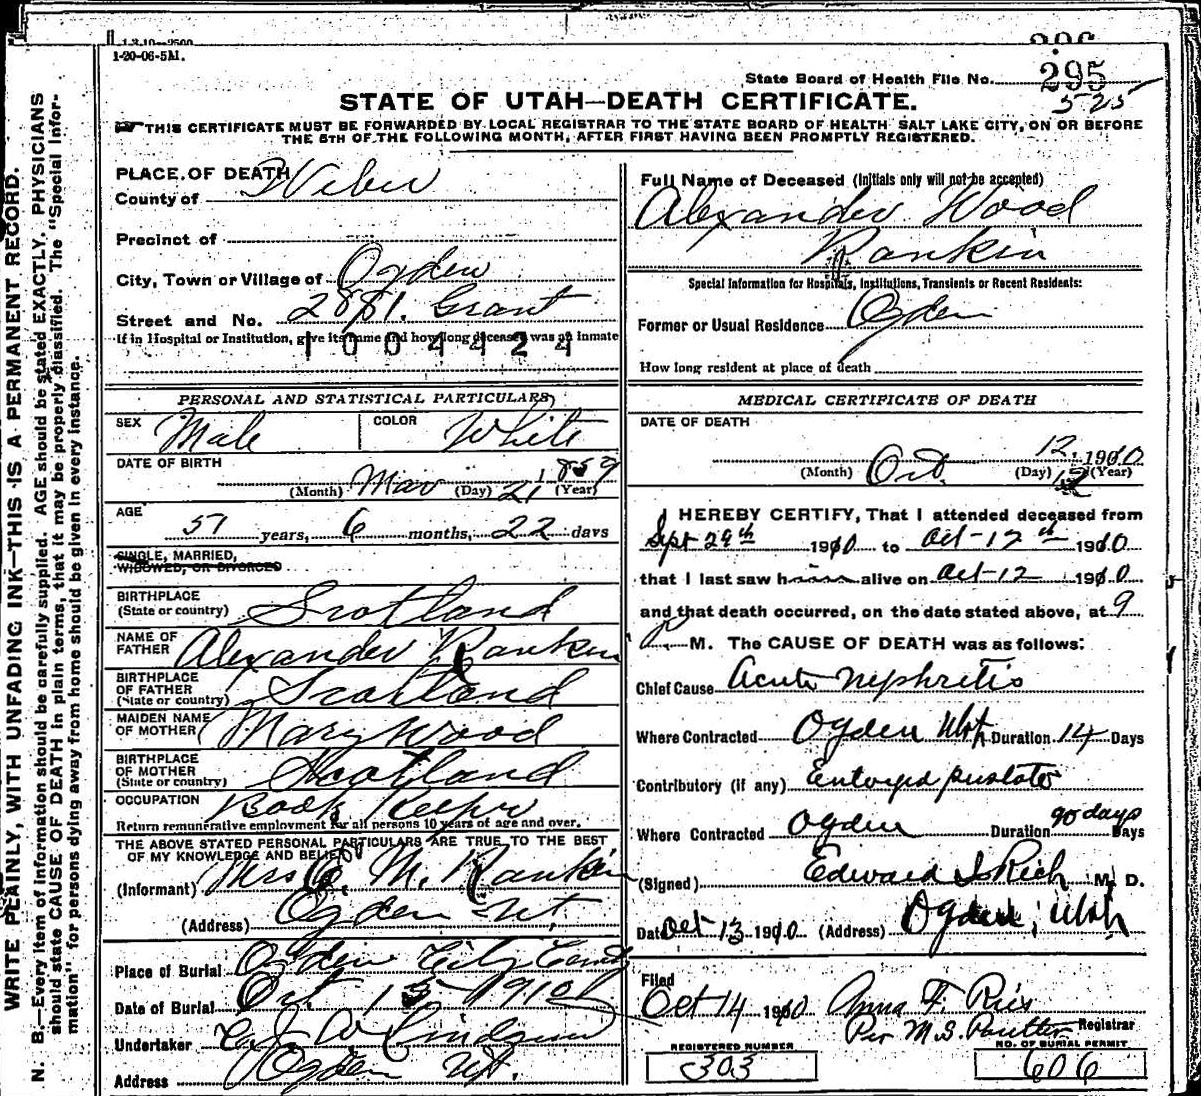 1-3-10-2500
1-20-06-5M.
State Board of Health File No. 295
525
STATE OF UTAH—DEATH CERTIFICATE.
THIS CERTIFICATE MUST BE FORWARDED BY LOCAL REGISTRAR TO THE STATE BOARD OF HEALTH SALT LAKE CITY, ON OR BEFORE
THE 5TH OF THE FOLLOWING MONTH, AFTER FIRST HAVING BEEN PROMPTLY REGISTERED.
WRITE PLAINLY, WITH UNFADING INK—THIS IS A PERMANENT RECORD.
N. B.—Every item of information should be carefully supplied. AGE should be stated EXACTLY, PHYSICIANS
should state CAUSE OF DEATH in plain terms, that it may be properly classified. The "Special Infor-
mation" for persons dying away from home should be given in every instance.
PLACE OF DEATH
County of Weber
Precinct of
City, Town or Village of Ogden
Street and No. 2881. Grant
If in Hospital or Institution, give its name and how long deceased was an inmate
1004424
PERSONAL AND STATISTICAL PARTICULARS
SEX Male COLOR White
DATE OF BIRTH
(Month) Mar (Day) 21 1859 (Year)
AGE 51 years, 6 months, 22 days
SINGLE, MARRIED,
WIDOWED, OR DIVORCED
BIRTHPLACE
(State or country) Scotland
NAME OF
FATHER Alexander Rankin
BIRTHPLACE
OF FATHER
(State or country) Scotland
MAIDEN NAME
OF MOTHER Mary Wood
BIRTHPLACE
OF MOTHER
(State or country) Scotland
OCCUPATION Book Keeper
Return remunerative employment for all persons 10 years of age and over.
THE ABOVE STATED PERSONAL PARTICULARS ARE TRUE TO THE BEST
OF MY KNOWLEDGE AND BELIEF
(Informant) Mrs M. Rankin
(Address) Ogden Ut.
Place of Burial Ogden City
Date of Burial Oct. 15 1910
Undertaker
Address Ogden Ut.
Full Name of Deceased (Initials only will not be accepted)
Alexander Wood
Rankin
Special Information for Hospitals, Institutions, Transients or Recent Residents:
Former or Usual Residence Ogden
How long resident at place of death
MEDICAL CERTIFICATE OF DEATH
DATE OF DEATH
12. 1910
(Month) Oct. (Day) 12 (Year)
I HEREBY CERTIFY, That I attended deceased from
Sept 29th 1910 to Oct-12th 1910
that I last saw him alive on Oct-12 1910
and that death occurred, on the date stated above, at 9
M. The CAUSE OF DEATH was as follows:
Chief Cause Acute Nephritis
Where Contracted Ogden Utah Duration 14 Days
Contributory (if any)
Where Contracted Ogden Duration 90 days Days
(Signed) Edward I Rich M. D.
Date Oct 13 1910 (Address) Ogden, Utah
Filed
Oct 14 1910 Anna F.
Per M.S. Registrar
REGISTERED NUMBER
303
NO. OF BURIAL PERMIT
606